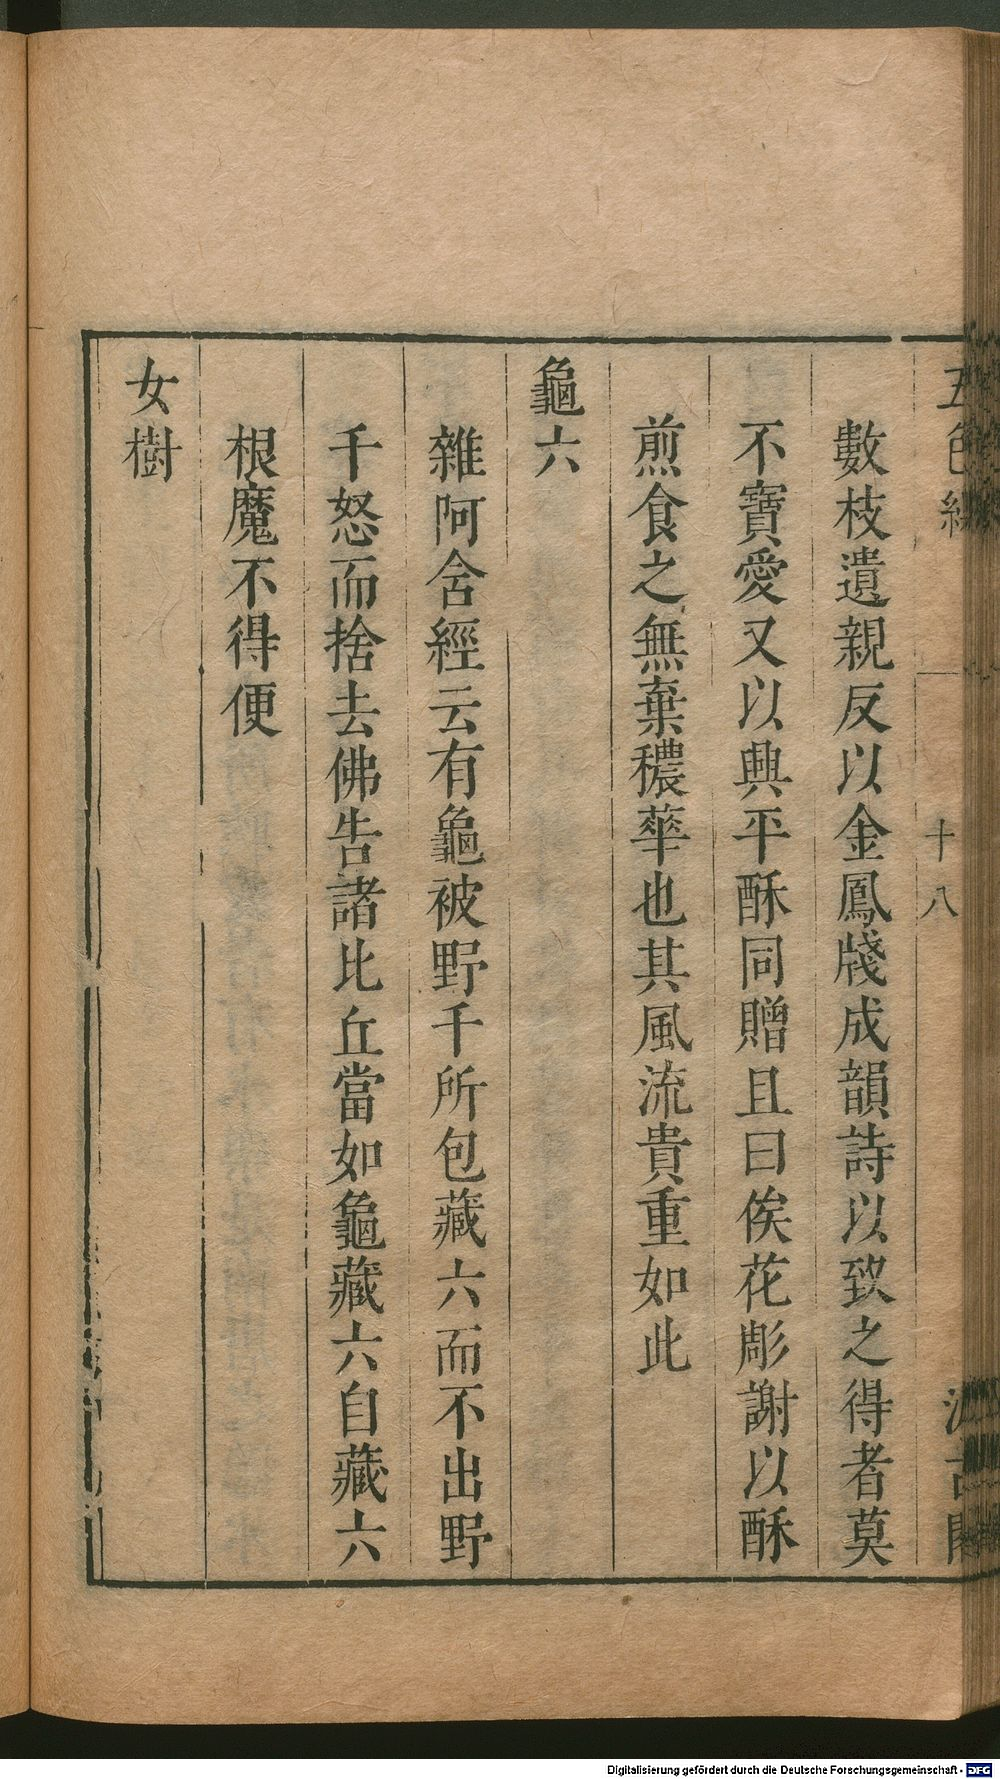 五色線
十八
汲古閣
數枝遺親反以金鳳牋成韻詩以致之得者莫
不寶愛又以興平酥同贈且曰俟花彫謝以酥
煎食之無棄穠華也其風流貴重如此
龜六
雜阿含經云有龜被野干所包藏六而不出野
干怒而捨去佛告諸比丘當如龜藏六自藏六
根魔不得便
女樹
Digitalisierung gefördert durch die Deutsche Forschungsgemeinschaft - DFG